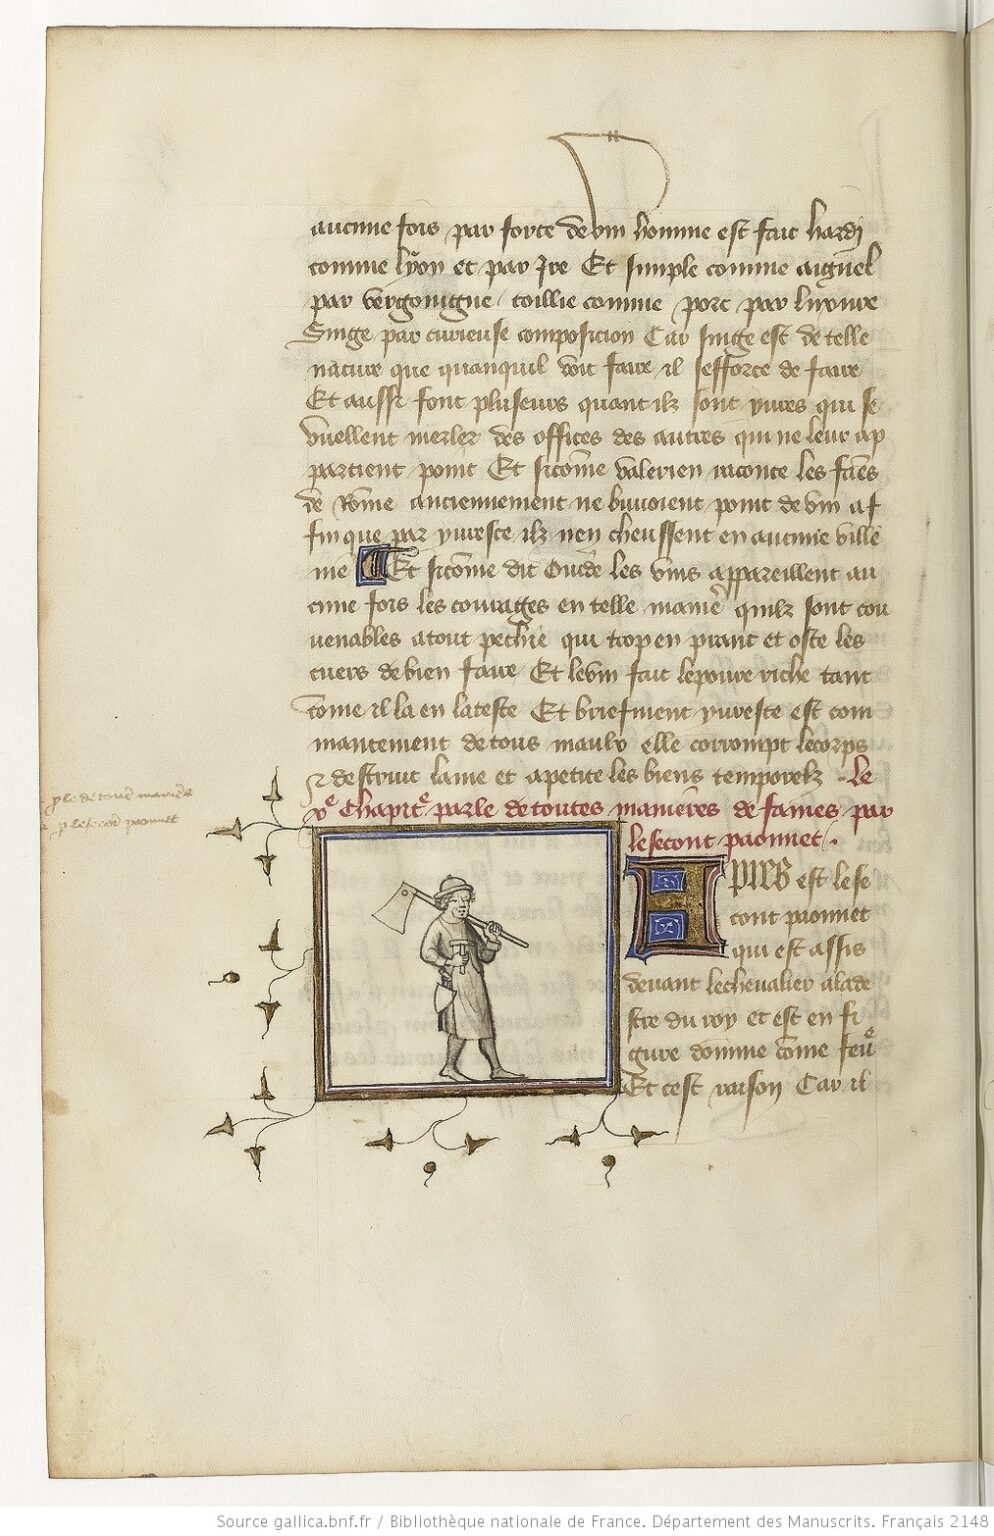 aucune fois par force de vin homme est fait hardi
comme lyon et par Ire Et simple comme aignel
par vergoingne soillie comme porc par luxure
Singe par curieuse composicion Car singe est de telle
nature que quanquil voit faire il sefforce de faire
Et aussi font pluseurs quant ilz sont yvres qui se
vuellent mesler des offices des autres qui ne leur ap
partient point Et sicōme valerien raconte les fāes
de Rōme anciennement ne buvoient point de vin af
fin que par yvresce ilz nen cheussent en aucune ville
nie Et sicōme dit Ovide les vins appareillent au
cune fois les courages en telle manie᷑ quilz sont cou
venables a tout pechie qui trop en prant et oste les
cuers de bien faire Et le vin fait le povre riche tant
cōme il la en la teste Et briefment yvresce est com
mancement de tous maulx elle corrompt le corps
⁊ destruit lame et apetite les biens temporelz Le
vᵉ Chapit᷑e parle de toutes manieres de fames par
le secont paonnet
Apres est le se
cont paonnet
qui est assis
devant le chevalier a la de
stre du roy et est en fi
gure domme cōme fev᷑e
Et cest raison Car il
ple de toutes manieres
ple secont paonnet
Source gallica.bnf.fr / Bibliothèque nationale de France. Département des Manuscrits. Français 2148